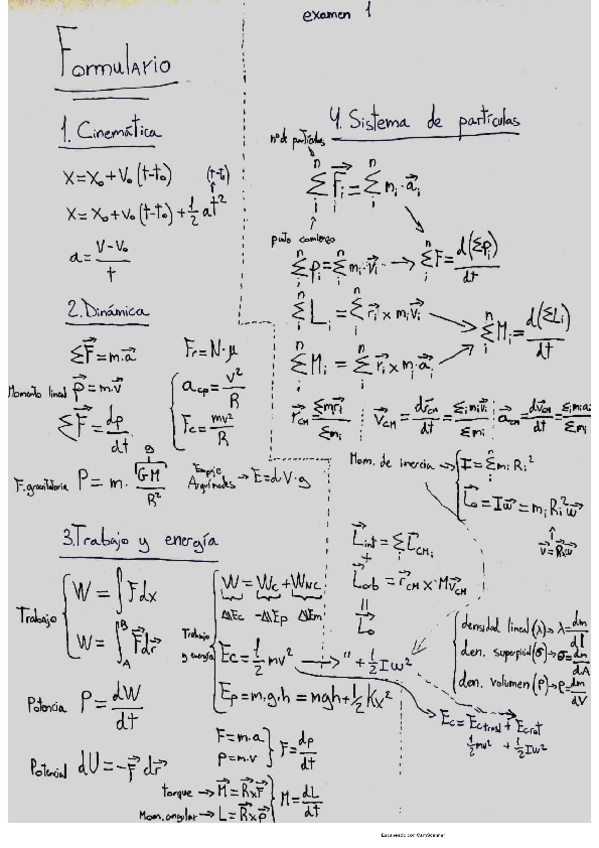 examen 1
Formulario
1. Cinemática
x = x₀ + v₀ (t-t₀)
(t-t₀)
x = x₀ + v₀ (t-t₀) + 1/2 at²
a = (v - v₀)/t
2. Dinámica
ΣF⃗ = m·a⃗
Momento lineal p⃗ = m·v⃗
ΣF⃗ = dp⃗/dt
Fr = N·μ
a_cp = v²/R
F_c = mv²/R
g
F. gravitatoria P = m· GM/R²
Empuje Arquímedes → E = d·V·g
3. Trabajo y energía
Trabajo
W = ∫ F⃗dx
W = ∫_A^B F⃗dr⃗
Potencia P = dW/dt
Potencial dU = -F⃗ dr⃗
Trabajo y energía
W = W_C + W_NC
ΔEc -ΔEp ΔEm
Ec = 1/2 mv² → " + 1/2 Iω²
Ep = m·g·h = mgh + 1/2 Kx²
F = m·a
p = m·v
F = dp/dt
torque → M⃗ = R⃗xF⃗
Mom. angular → L = R⃗xp⃗
M = dL/dt
4. Sistema de partículas
nº de partículas
Σ_i^n F⃗_i = Σ_i^n m_i·a⃗_i
punto comienzo
Σ_i^n p_i = Σ_i^n m_i·v⃗_i → Σ_i^n F = d(Σp_i)/dt
Σ_i^n L_i = Σ_i^n r⃗_i x m_i v⃗_i
Σ_i^n M_i = Σ_i^n r⃗_i x m_i·a⃗_i
Σ_i^n M_i = d(ΣL_i)/dt
r⃗_CM = Σmr⃗_i/Σm_i
v⃗_CM = dr⃗_CM/dt = Σ_i m_i v⃗_i/Σm_i
a⃗_CM = dv⃗_CM/dt = Σ_i m_i a/Σm_i
Mom. de inercia → I = Σ_i^n m_i R_i²
L⃗₀ = Iω⃗ = m_i R_i² ω⃗
v⃗ = R⃗xω
L⃗_int = Σ_i L⃗_CMi
+
L⃗_orb = r⃗_CM x Mv⃗_CM
||
L⃗₀
densidad lineal (λ) → λ = dm/dl
den. superficial (σ) → σ = dm/dA
den. volumen (ρ) → ρ = dm/dV
Ec = Ectrasl + Ecrot
1/2 mv² + 1/2 Iω²
Escaneado por CamScanner